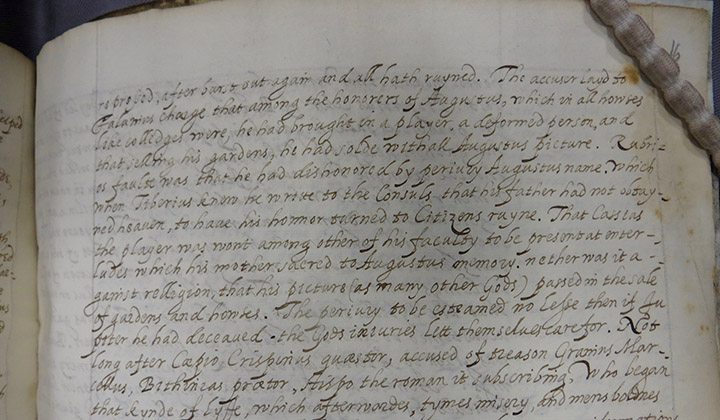 16
repressed, after burst out again and all hath ruyned. The accuser layd to
Falanius charge that among the honorers of Augustus, which in all howses
like colledges were, he had brought in a player, a deformed person, and
that selling his gardens, he had solde withall Augustus picture. Rubri-
us faulte was that he had dishonored by periury Augustus name. Which
when Tiberius knew he wrote to the Consuls that his father had not obtay-
ned heaven, to have his honnor turned to Citizens ruyne. That Cassius
the player was wont among other of his faculty to be present at enter-
ludes which his mother sacred to Augustus memory. nether was it a-
gainst relligion, that his picture (as many other Gods) passed in the sale
of gardens and howses. The periury to be esteamed no lesse then if Ju
piter he had deceaued. the Gods iniuries lett themselues care for. Not
long after Cæpio Crispinus quæstor, accused of treason Granius Mar-
cellus, Bithineas prætor, Hispo the roman it subscribing, Who began
that kynde of lyffe, which afterwordes, tymes misery, and mens boldnes